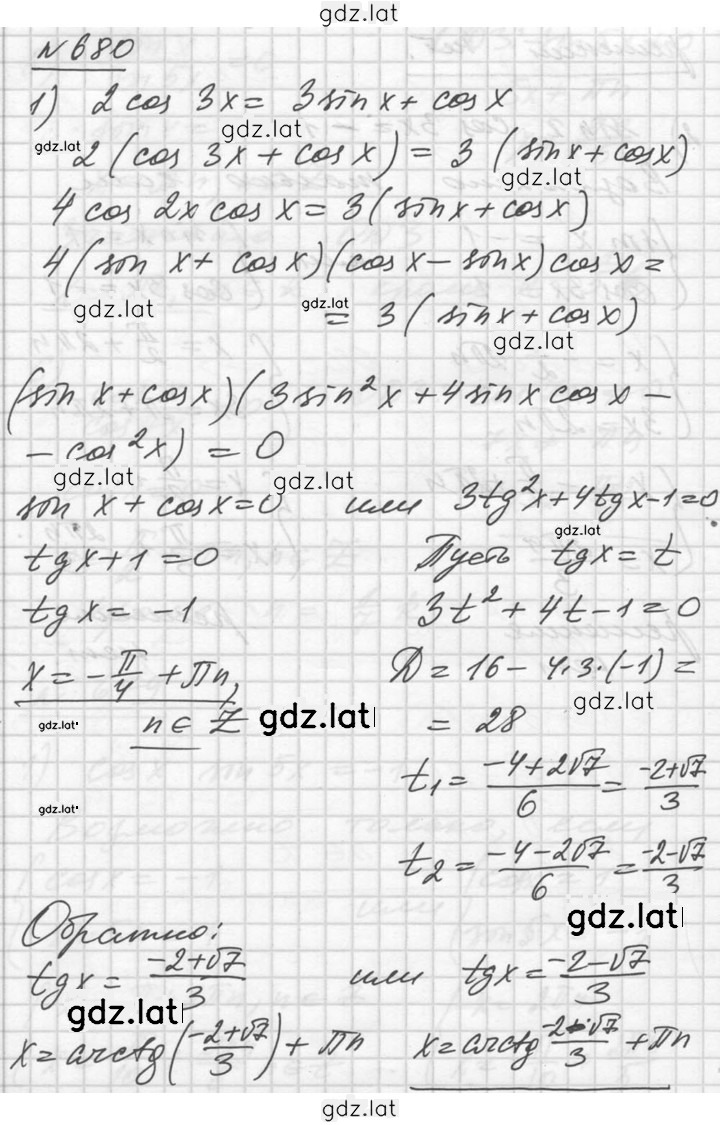 gdz.lat
№680
1) 2 cos 3x = 3 sin x + cos x
gdz.lat
gdz.lat 2 (cos 3x + cos x) = 3 (sin x + cos x)
gdz.lat
4 cos 2x cos x = 3 (sin x + cos x)
4 (sin x + cos x)(cos x - sin x) cos x =
gdz.lat gdz.lat
= 3 (sin x + cos x)
gdz.lat
(sin x + cos x)(3 sin²x + 4 sin x cos x -
- cos²x) = 0
gdz.lat gdz.lat
sin x + cos x = 0 или 3tg²x + 4tgx - 1 = 0
gdz.lat
tgx + 1 = 0 Пусть tgx = t
tgx = -1 3t² + 4t - 1 = 0
x = -π/4 + πn, D = 16 - 4·3·(-1) =
gdz.lat
gdz.lat n ∈ Z gdz.lat = 28
t₁ = (-4+2√7)/6 = (-2+√7)/3
gdz.lat
t₂ = (-4-2√7)/6 = (-2-√7)/3
gdz.lat
Обратно:
tgx = (-2+√7)/3 или tgx = (-2-√7)/3
gdz.lat
x = arctg((-2+√7)/3) + πn x = arctg (-2-√7)/3 + πn
gdz.lat